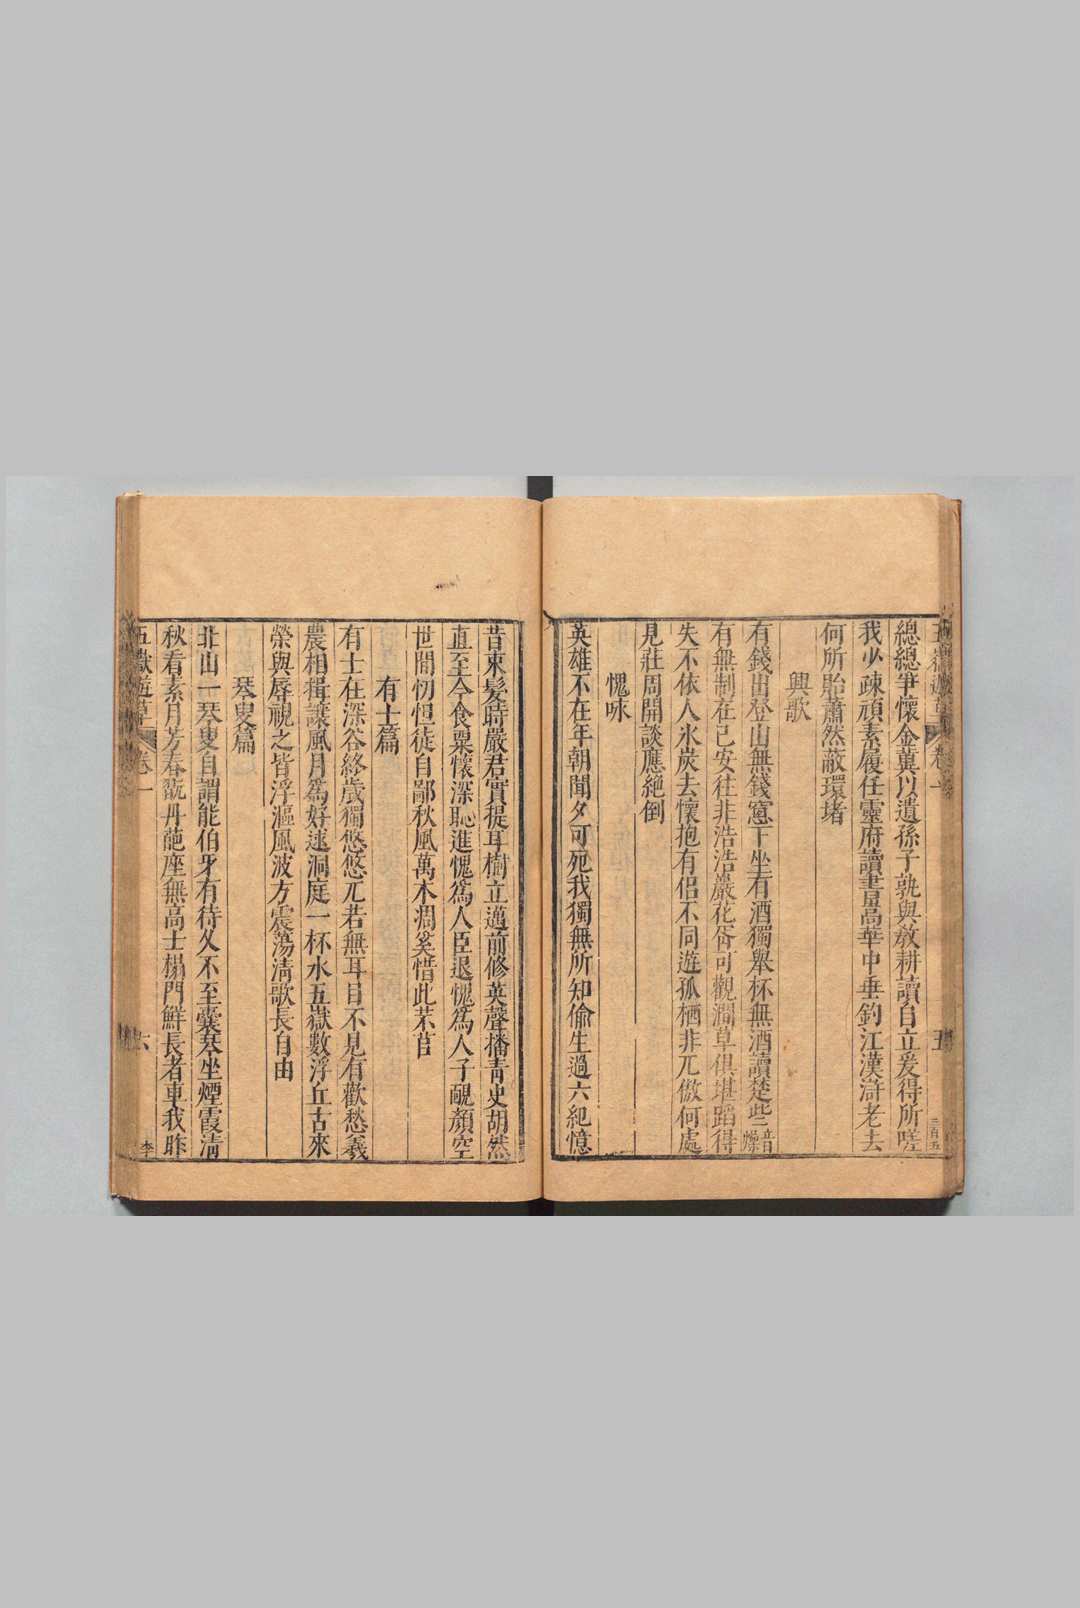 總總爭懷金冀以遺孫子孰與敎耕讀自立爰得所嗟
我少疎頑素履任靈府讀書嵩華中垂釣江漢滸老去
何所貽蕭然蔽環堵
興歌
有錢出登山無錢窻下坐有酒獨舉杯無酒讀楚些音燥
有無制在己安往非浩浩巖花胥可觀澗草俱堪蹈得
失不依人氷炭去懷抱有侣不同遊孤栖非兀傲何處
見莊周開談應絕倒
愧咏
英雄不在年朝聞夕可死我獨無所知偷生過六紀憶
昔束髮時嚴君實提耳樹立邁前修英聲播靑史胡然
直至今食粟懷深恥進愧爲人臣退愧爲人子靦顏空
世間忉怛徒自鄙秋風萬木凋奚惜此芣苢
有士篇
有士在深谷終歲獨悠悠兀若無耳目不見有歡愁羲
農相揖讓風月爲好逑洞庭一杯水五嶽數浮丘古來
榮與辱視之皆浮漚風波方震蕩淸歌長自由
琴叟篇
北山一琴叟自謂能伯牙有待久不至囊琴坐煙霞淸
秋看素月芳春翫丹葩座無高士榻門鮮長者車我昨
五嶽遊草 卷一 六 李